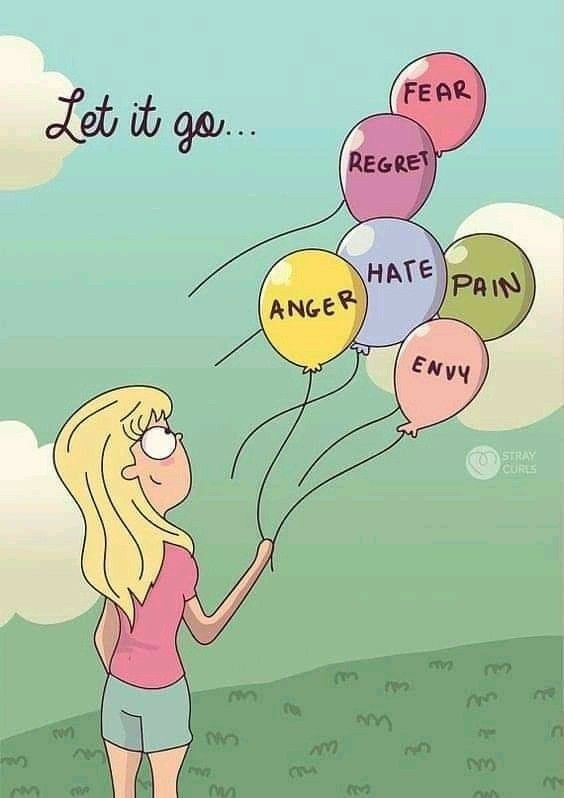 Let it go...
FEAR
REGRET
HATE
PAIN
ANGER
ENVY
STRAY
CURLS